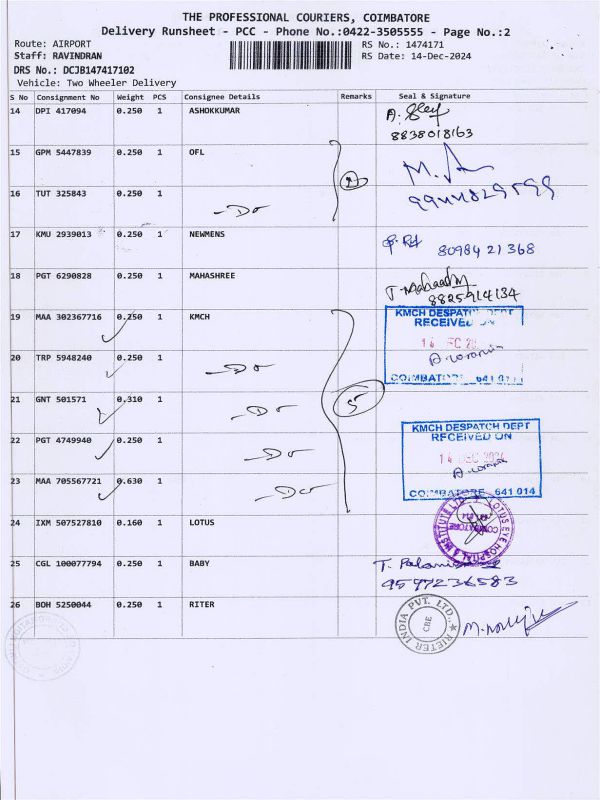 THE PROFESSIONAL COURIERS, COIMBATORE
Delivery Runsheet - PCC - Phone No.:0422-3505555 - Page No.:2
Route: AIRPORT RS No.: 1474171
Staff: RAVINDRAN RS Date: 14-Dec-2024
DRS No.: DCJB147417102
Vehicle: Two Wheeler Delivery
S No Consignment No Weight PCS Consignee Details Remarks Seal & Signature
14 DPI 417094 0.250 1 ASHOKKUMAR
8838018163
15 GPM 5447839 0.250 1 OFL
16 TUT 325843 0.250 1 -Do
17 KMU 2939013 0.250 1 NEWMENS
8098421368
18 PGT 6290828 0.250 1 MAHASHREE
8825914134
19 MAA 302367716 0.250 1 KMCH
KMCH DESPATCH DEPT
RECEIVED ON
20 TRP 5948240 0.250 1 -Do
COIMBATORE
21 GNT 501571 0.310 1 -Do 5
KMCH DESPATCH DEPT
RECEIVED ON
22 PGT 4749940 0.250 1 -Do
14 DEC 2024
23 MAA 705567721 0.630 1 -Do
COIMBATORE 641 014
24 IXM 507527810 0.160 1 LOTUS
LOTUS EYE HOSPITAL & INSTITUTE LTD
COIMBATORE
25 CGL 100077794 0.250 1 BABY
9597236583
26 BOH 5250044 0.250 1 RITER
RIETER INDIA PVT. LTD.
CBE